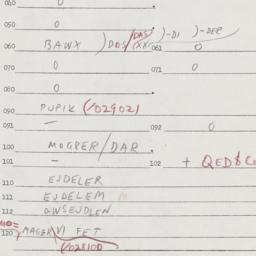 040 0
050 0
060 BAWX )DOS/ )-DI )-DER
061 0
070 0 071 0
080 0
090 PUPIK (/029021
091 — 092 0
100 MOGRER/DAR
101 — 102 + QED&
110 EJDELER
111 EJDELEM
112 GWSEJDLEN
120 MAGER\VI FET
(/028100